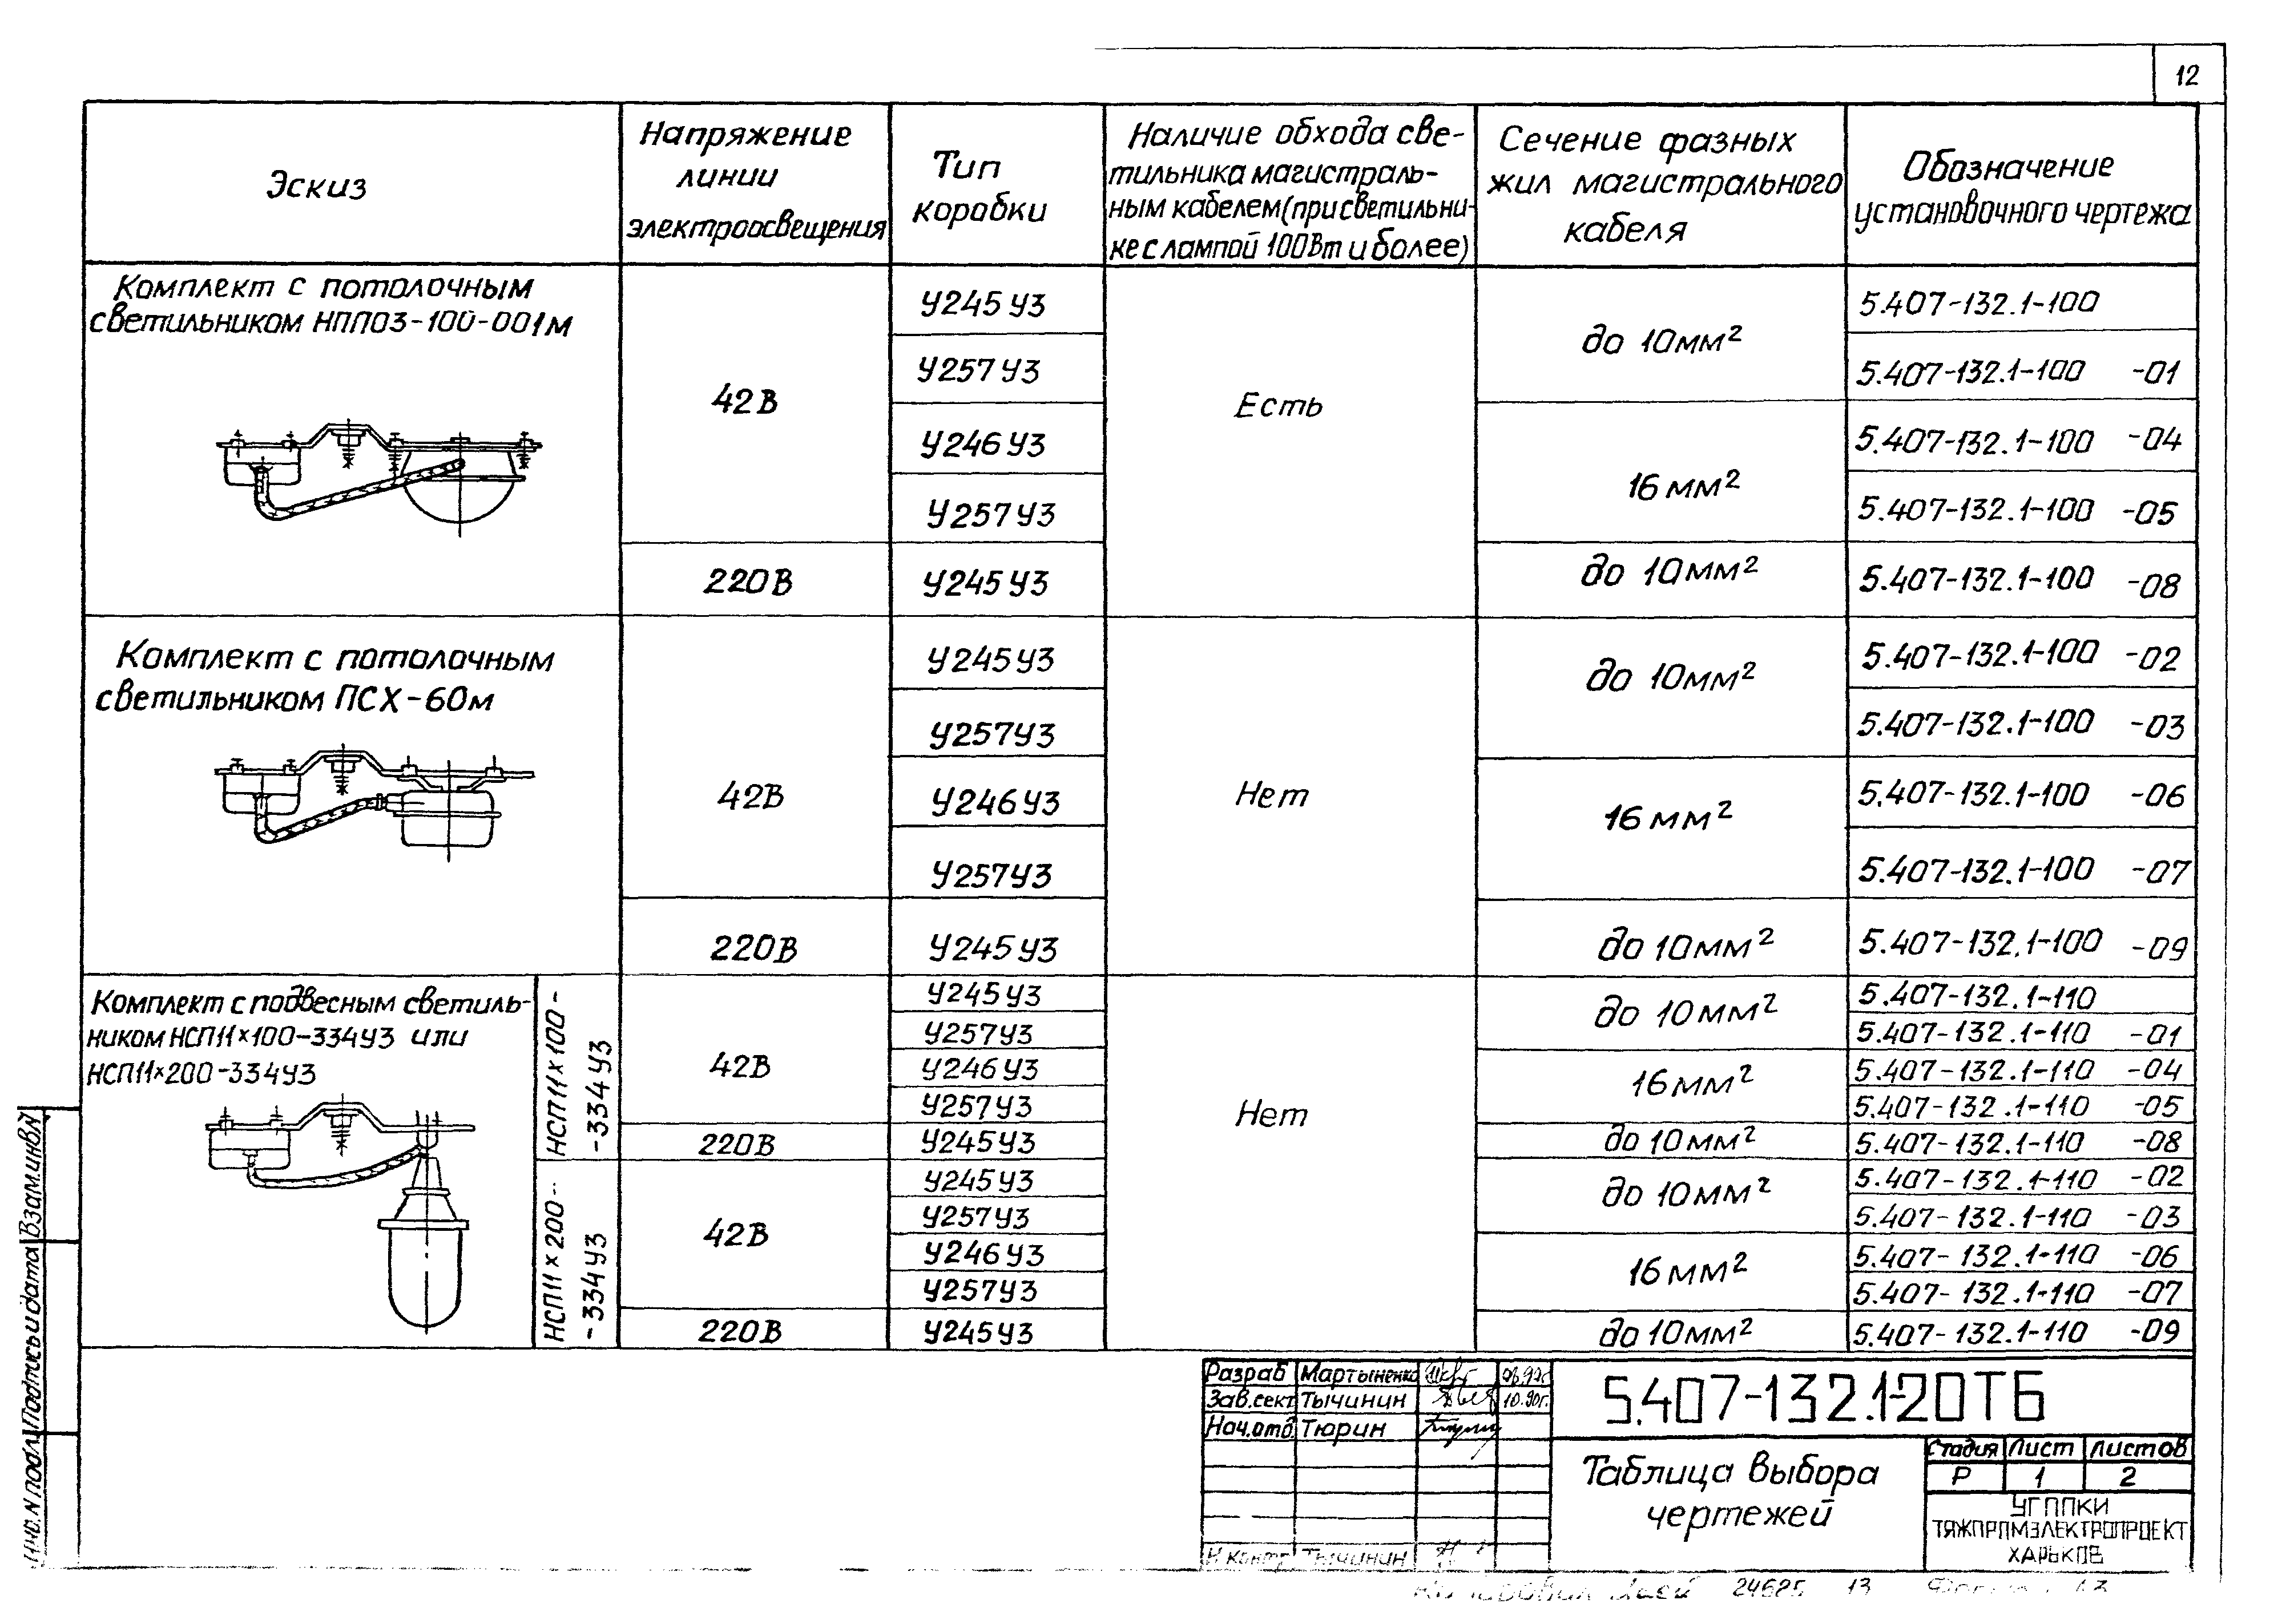 12
Эскиз
Напряжение
линии
электроосвещения
Тип
коробки
Наличие обхода све-
тильника магистраль-
ным кабелем (при светильни-
ке с лампой 100Вт и более)
Сечение фазных
жил магистрального
кабеля
Обозначение
установочного чертежа
Комплект с потолочным
светильником НПП03-100-001м
42В
У245У3
Есть
до 10мм²
5.407-132.1-100
У257У3
5.407-132.1-100 -01
У246У3
16мм²
5.407-132.1-100 -04
У257У3
5.407-132.1-100 -05
220В
У245У3
до 10мм²
5.407-132.1-100 -08
Комплект с потолочным
светильником ПСХ-60м
42В
У245У3
Нет
до 10мм²
5.407-132.1-100 -02
У257У3
5.407-132.1-100 -03
У246У3
16мм²
5.407-132.1-100 -06
У257У3
5.407-132.1-100 -07
220В
У245У3
до 10мм²
5.407-132.1-100 -09
Комплект с подвесным светиль-
ником НСП11×100-334У3 или
НСП11×200-334У3
НСП11×100-
-334У3
42В
У245У3
Нет
до 10мм²
5.407-132.1-110
У257У3
5.407-132.1-110 -01
У246У3
16мм²
5.407-132.1-110 -04
У257У3
5.407-132.1-110 -05
220В
У245У3
до 10мм²
5.407-132.1-110 -08
НСП11×200-
-334У3
42В
У245У3
до 10мм²
5.407-132.1-110 -02
У257У3
5.407-132.1-110 -03
У246У3
16мм²
5.407-132.1-110 -06
У257У3
5.407-132.1-110 -07
220В
У245У3
до 10мм²
5.407-132.1-110 -09
Взам.инв.№
Подпись и дата
Инв.N подл.
Разраб Мартыненко
Зав.сект Тычинин 10.90г.
Нач.отд. Тюрин
Н контр Тычинин
5.407-132.1-20ТБ
Таблица выбора
чертежей
Стадия Лист Листов
Р 1 2
УГППКИ
ТЯЖПРОМЭЛЕКТРОПРОЕКТ
ХАРЬКОВ
24625 13